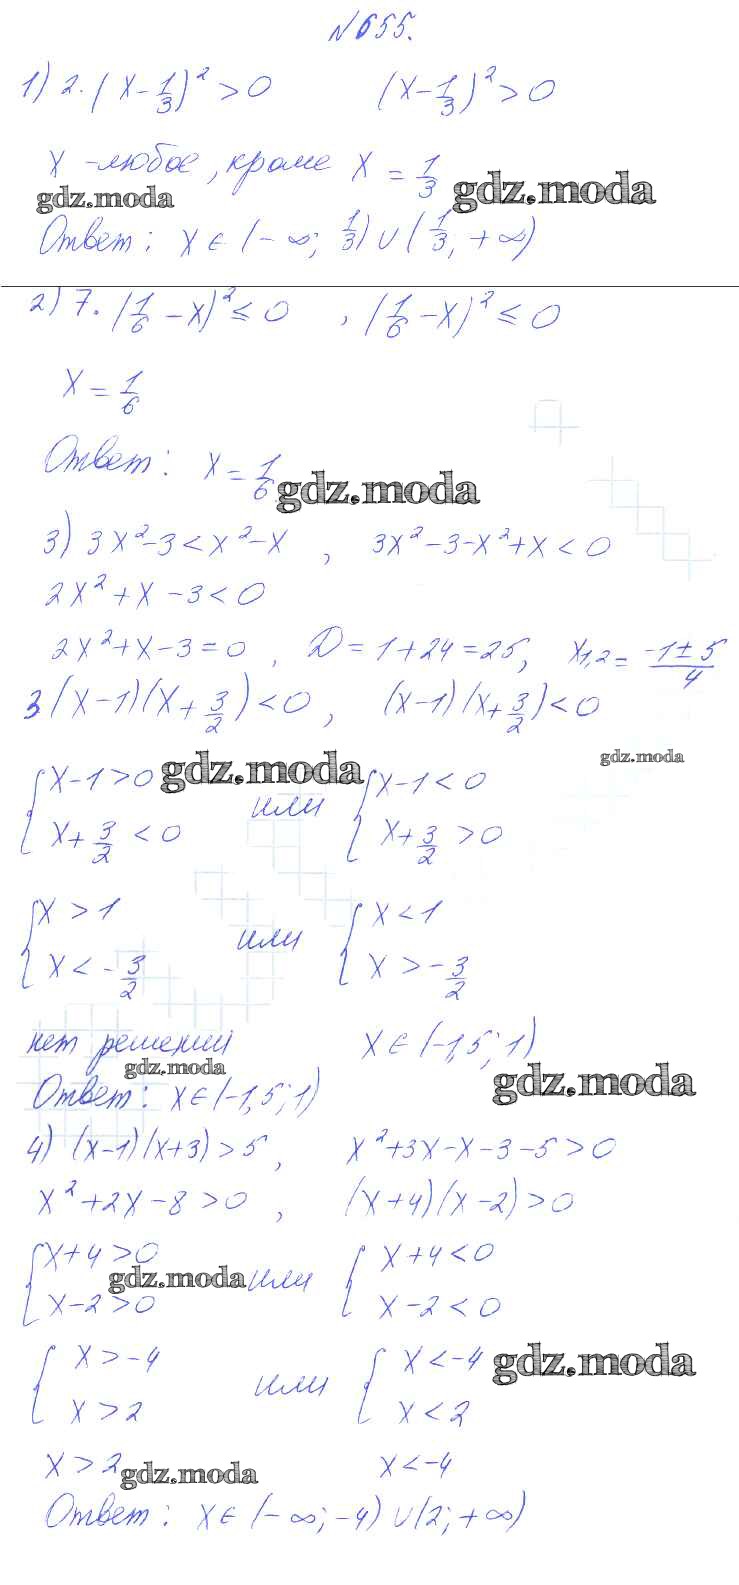 №655.
1) 2·(x-1/3)² > 0   (x-1/3)² > 0
x - любое, кроме x = 1/3
gdz.moda gdz.moda
Ответ: x ∈ (-∞; 1/3) ∪ (1/3; +∞)
2) 7·(1/6 - x)² ≤ 0 , (1/6 - x)² ≤ 0
x = 1/6
Ответ: x = 1/6
gdz.moda
3) 3x²-3 < x²-x , 3x²-3-x²+x < 0
2x²+x-3 < 0
2x²+x-3 = 0 , D = 1+24 = 25, x1,2 = (-1±5)/4
3(x-1)(x+3/2) < 0 , (x-1)(x+3/2) < 0
gdz.moda gdz.moda
{ x-1 > 0 или { x-1 < 0
x+3/2 < 0   x+3/2 > 0
{ x > 1 или { x < 1
x < -3/2   x > -3/2
нет решений   x ∈ (-1,5; 1)
gdz.moda gdz.moda
Ответ: x ∈ (-1,5; 1)
4) (x-1)(x+3) > 5 , x²+3x-x-3-5 > 0
x²+2x-8 > 0 , (x+4)(x-2) > 0
{ x+4 > 0 или { x+4 < 0
gdz.moda
x-2 > 0   x-2 < 0
{ x > -4 или { x < -4
gdz.moda
x > 2   x < 2
x > 2   x < -4
gdz.moda
Ответ: x ∈ (-∞; -4) ∪ (2; +∞)